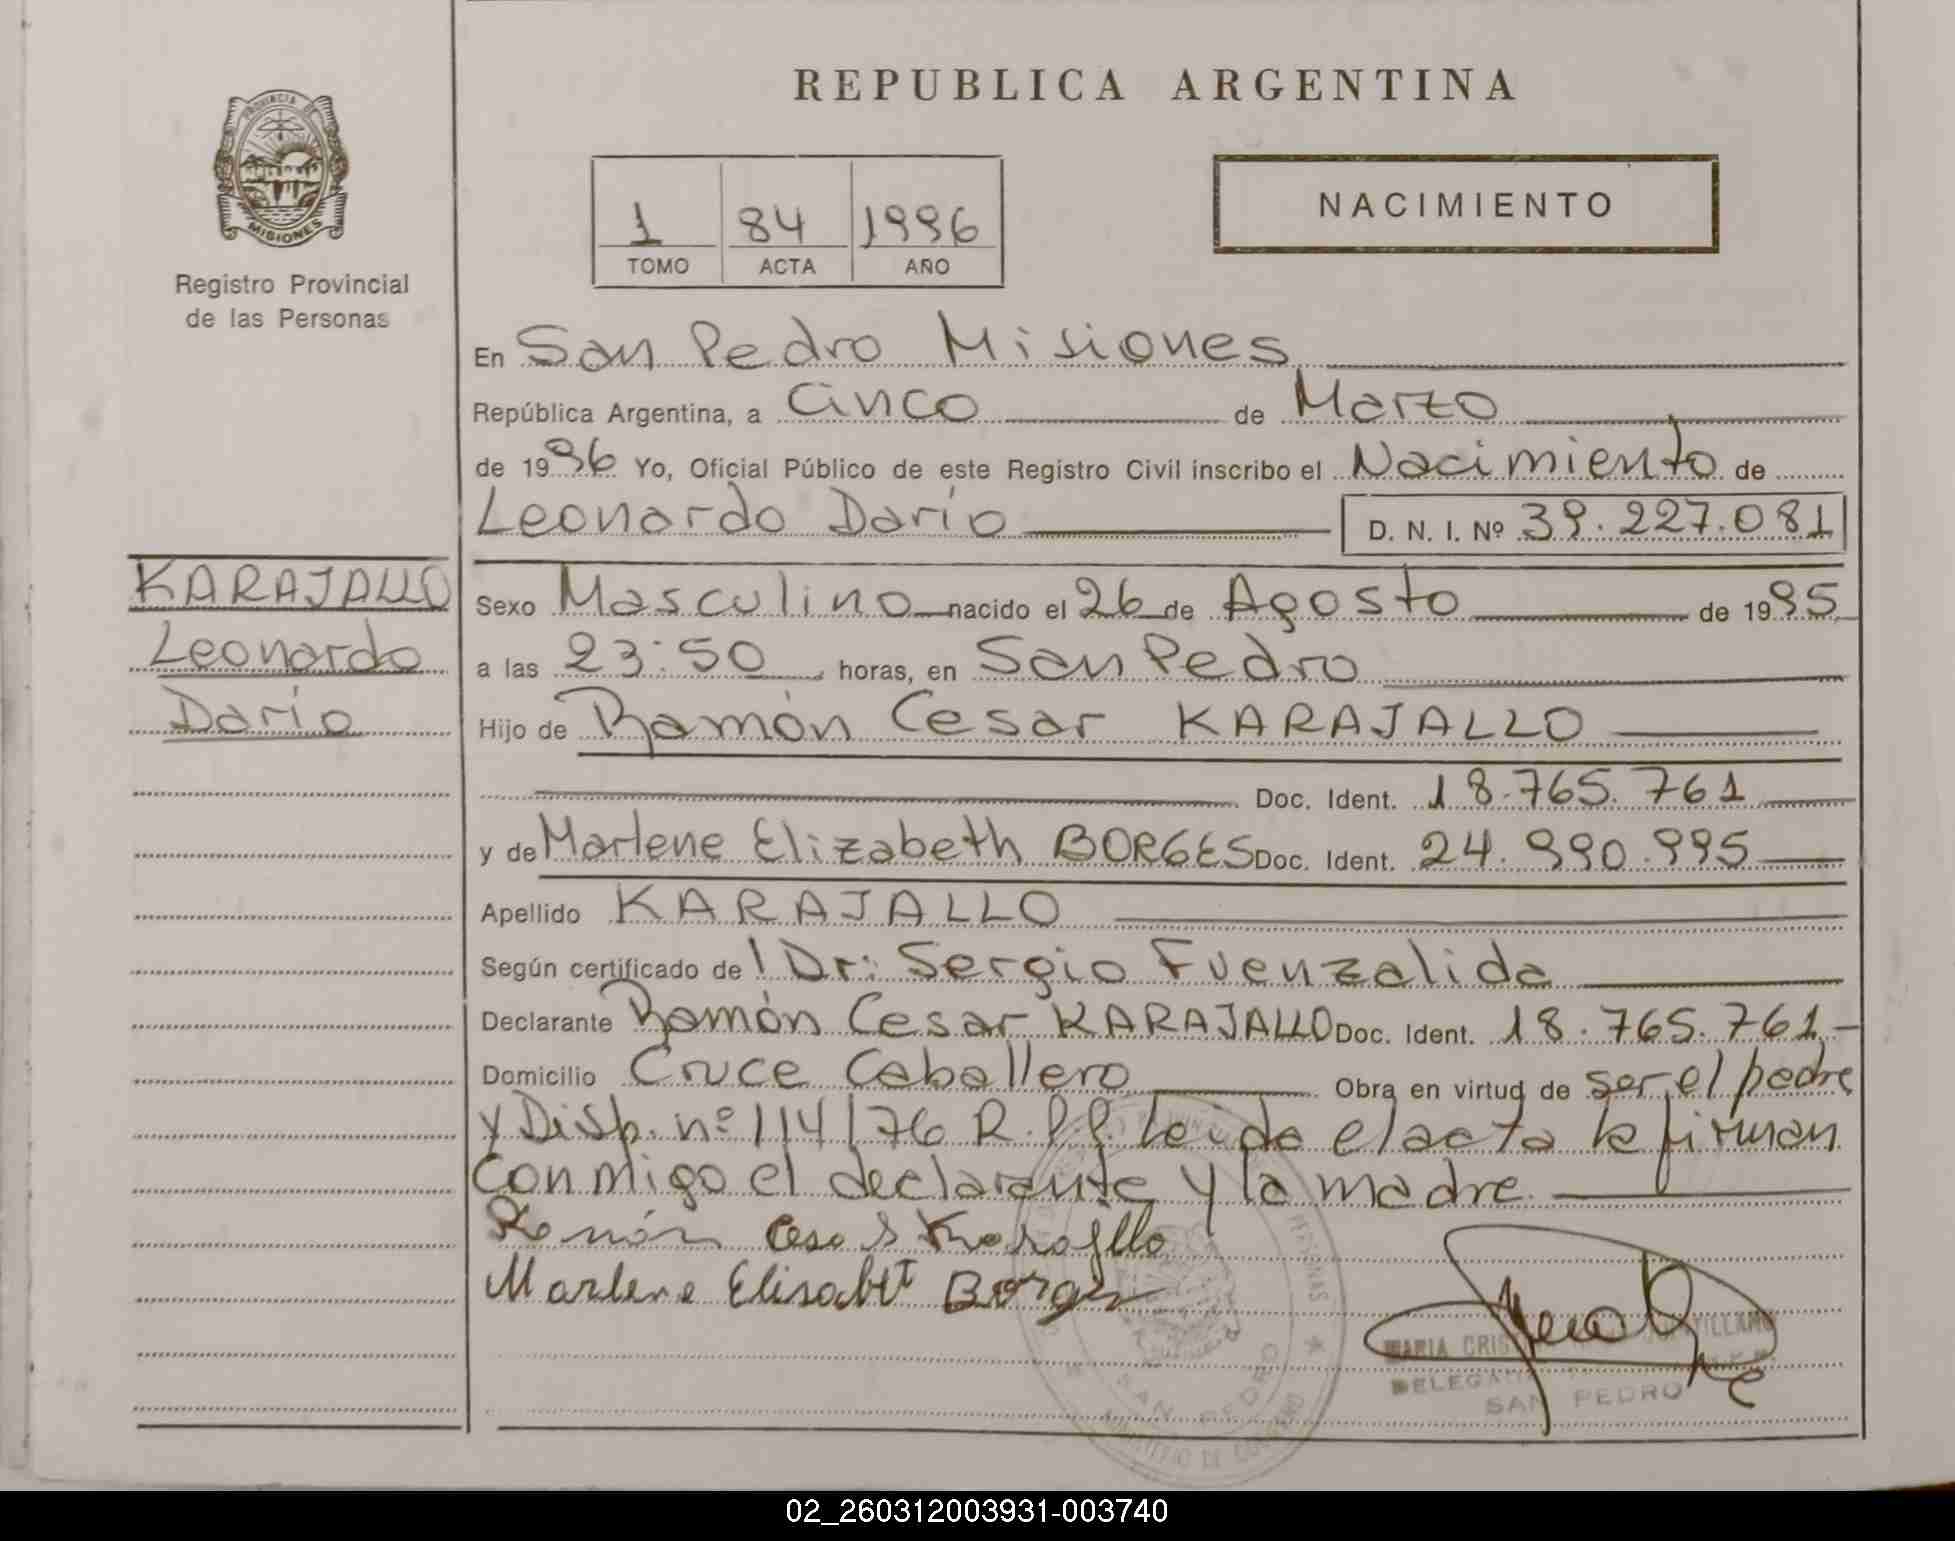 REPUBLICA ARGENTINA
PROVINCIA DE
MISIONES
Registro Provincial
de las Personas
1 84 1996
TOMO ACTA AÑO
NACIMIENTO
En San Pedro Misiones
República Argentina, a Cinco de Marzo
de 1996 Yo, Oficial Público de este Registro Civil inscribo el Nacimiento de
Leonardo Darío D. N. I. Nº 39.227.081
KARAJALLO
Leonardo
Darío
Sexo Masculino nacido el 26 de Agosto de 1995
a las 23:50 horas, en San Pedro
Hijo de Ramón Cesar KARAJALLO
Doc. Ident. 18.765.761
y de Marlene Elizabeth BORGES Doc. Ident. 24.990.995
Apellido KARAJALLO
Según certificado del Dr: Sergio Fuenzalida
Declarante Ramón Cesar KARAJALLO Doc. Ident. 18.765.761
Domicilio Cruce Caballero Obra en virtud de ser el padre
y Disp. nº 114/76 R.P.P. Leida el acta la firman
conmigo el declarante y la madre.
Ramón Cesar Karajllo
Marlene Elisabet Borges
MARIA
SAN PEDRO
SAN PEDRO
02_260312003931-003740